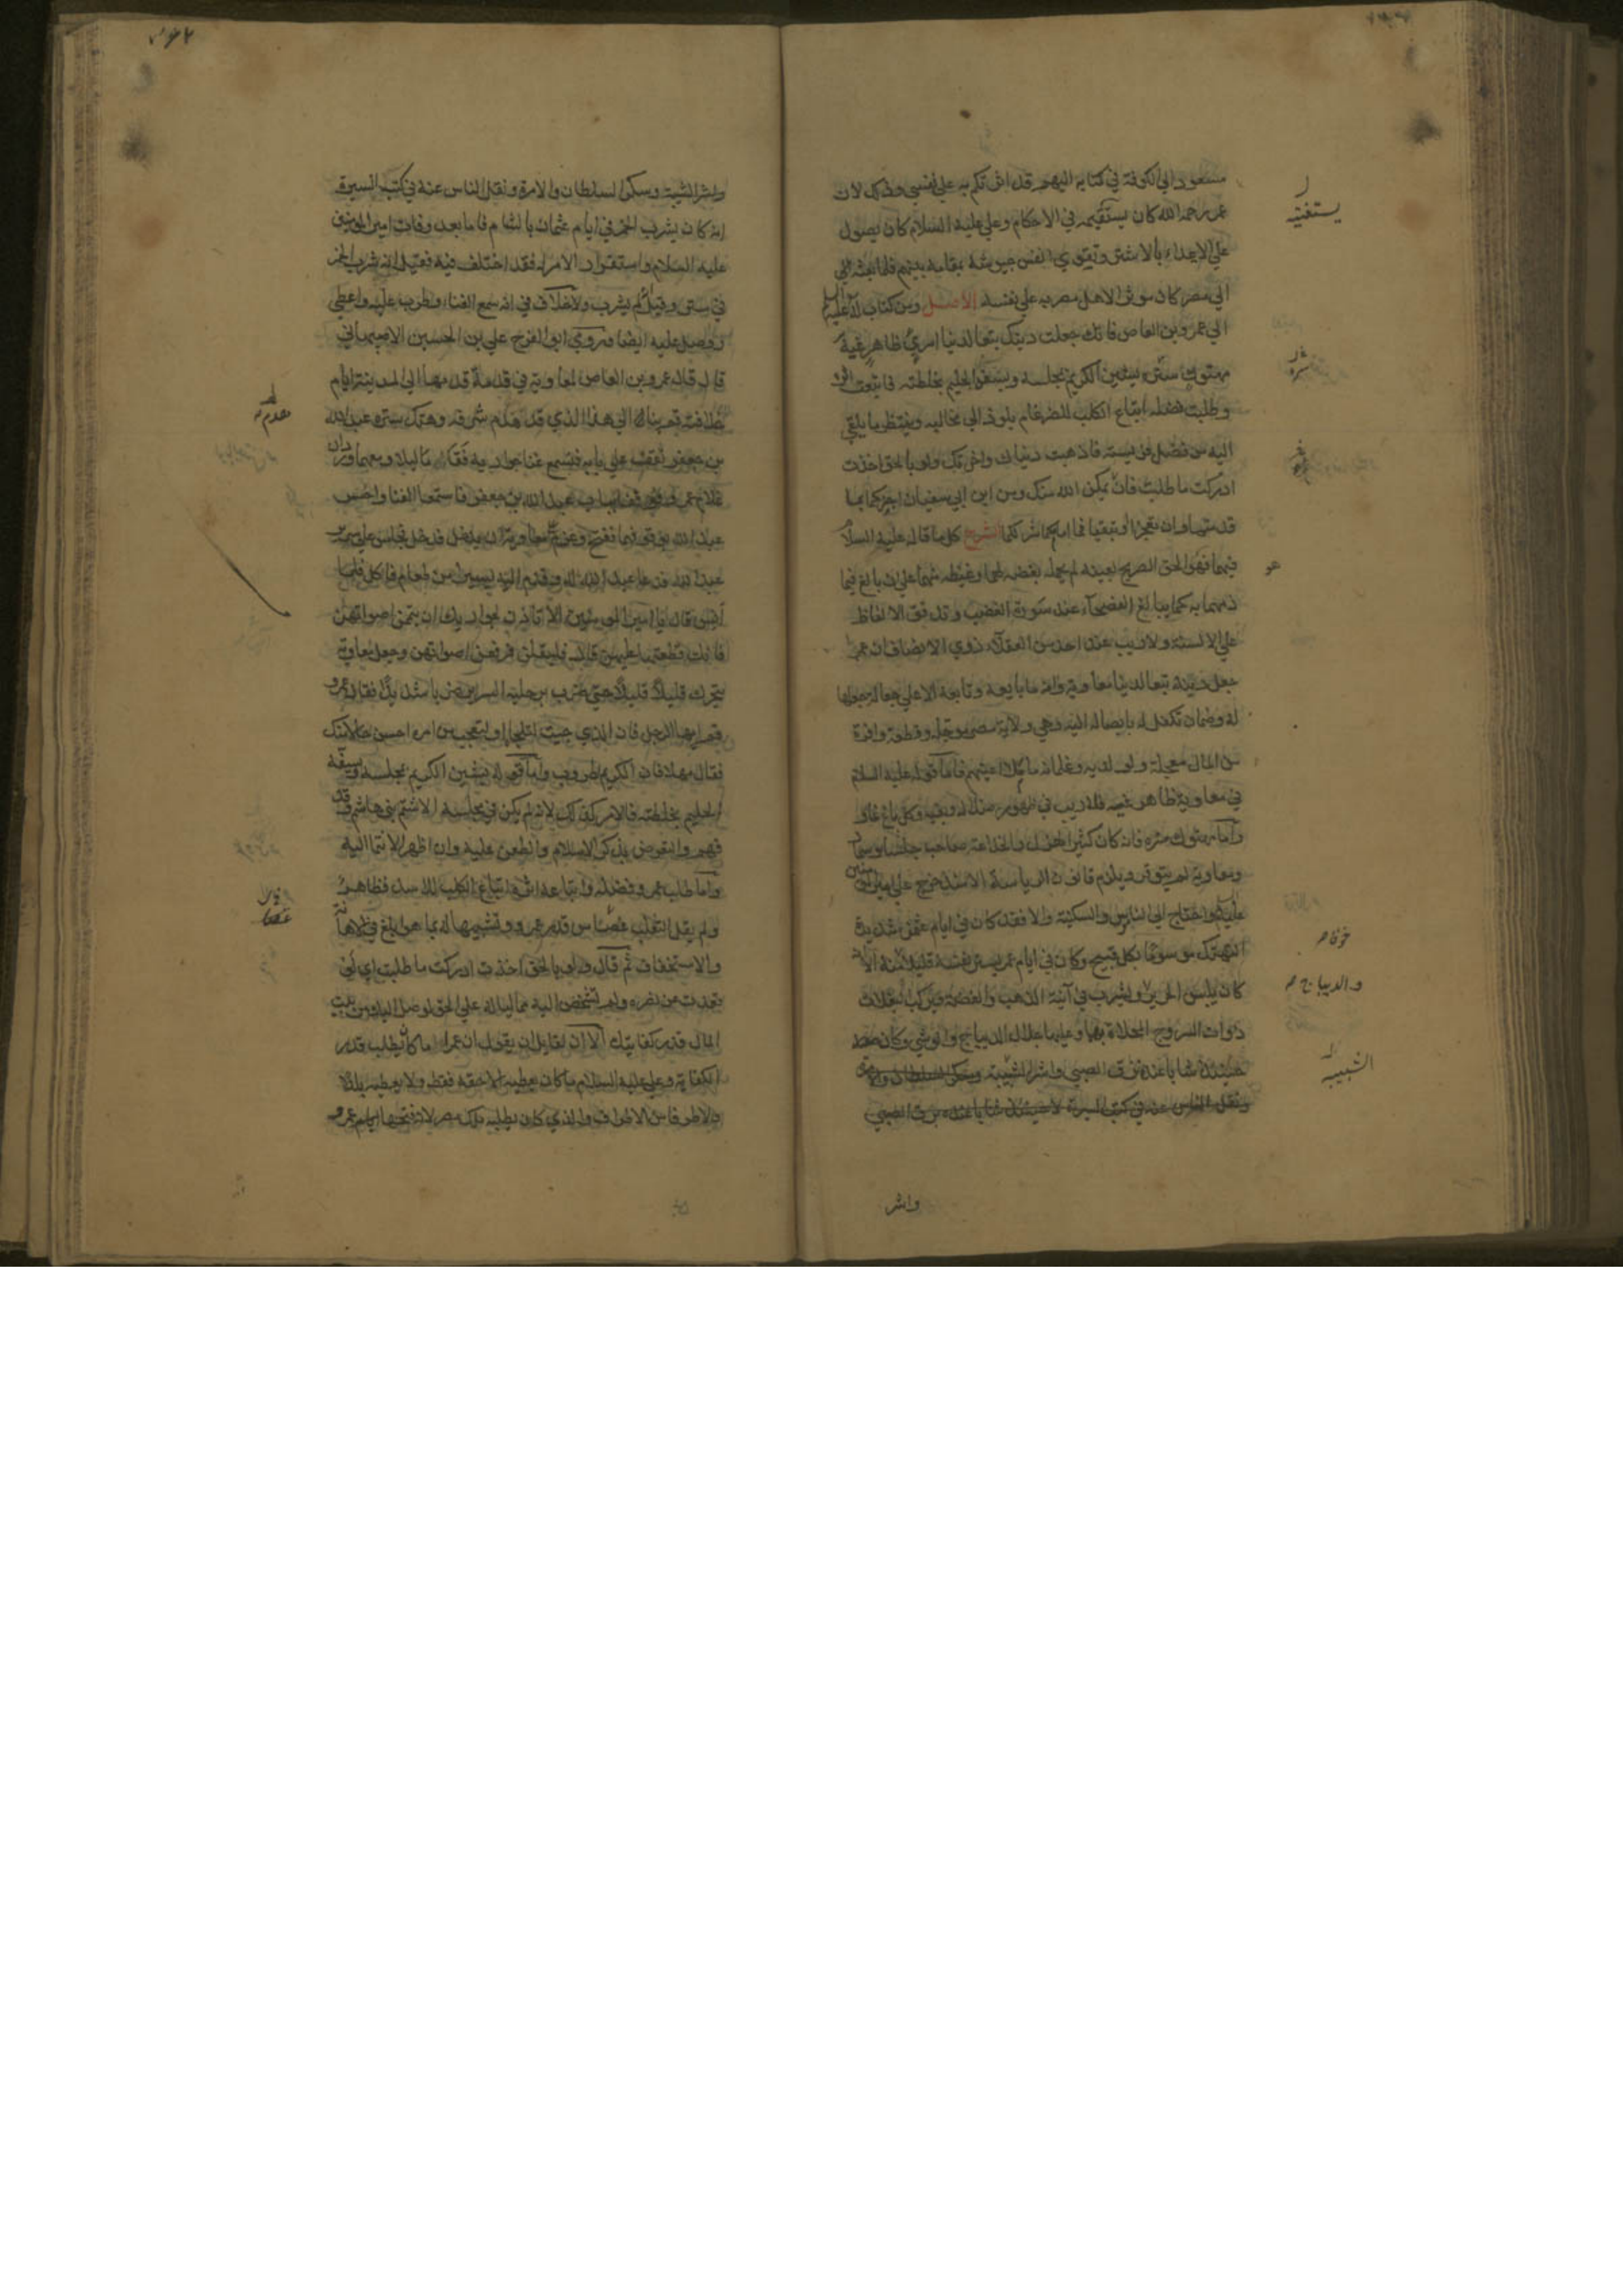 مسعود الي الكوفة في كتابه اليهم قد اثرتكم به علي نفسي وذلك لان
عمر رحمه الله كان يستفتيه في الاحكام وعلي عليه السلام كان يصول
علي الاعداء بالاشتر وتقوي انفس جيوشه بمقامه بينهم فلما بعثه الي
الي مصر كان موثرا لاهل مصر به علي نفسه الاصل ومن كتاب له عليه السلم
الي عمرو بن العاص فانك جعلت دينك تبعا لدنيا امري ظاهر غيه
مهتوك ستره يشين الكريم بمجلسه ويسفه الحليم بخلطته فاتبعت اثره
وطلبت فضله اتباع الكلب للضرغام يلوذ الي مخالبه وينتظر ما يلقي
اليه من فضل فريسته فاذهبت دنياك واخرتك ولو بالحق اخذت
ادركت ما طلبت فان يمكن الله منك ومن ابن ابي سفيان اجزكما بما
قدمتما وان تعجزا وتبقيا فما امامكما شر لكما الشرح كل ما قاله عليه السلام
فيهما فهو الحق الصريح بعينه لم يحمله بغضه لهما وغيظه منهما علي ان بالغ فيما
ذمهما به كما يبالغ الفصحاء عند سورة الغضب وتدفق الالفاظ
علي الالسنة ولا ريب عند احد من العقلاء ذوي الانصاف ان عمرا
جعل دينه تبعا لدنيا معاوية وانه ما بايعه وتابعه الا علي جعالة جعلها
له وضمان تكفل له بايصاله اليه وهي ولاية مصر موجلة وقطعة وافرة
من المال معجلة ولولديه وغلمانه ما ملا اعينهم فاما قوله عليه السلام
في معاوية ظاهر غيه فلا ريب في ظهور ضلاله وبغيه وكل باغ غاو
واما مهتوك ستره فانه كان كثير الهزل والخلاعة صاحب جلساء وسمار
ومعاوية لم يتوقر ويلزم قانون الرياسة الا منذ خرج علي امير المومنين
عليه السلم واحتاج الي الناموس والسكينة والا فقد كان في ايام عثمن شديد
التهتك موسوما بكل قبيح وكان في ايام عمر يستر نفسه قليلا منه الا انه
كان يلبس الحرير ويشرب في آنية الذهب والفضة ويركب البغلات
ذوات السروج المحلاة بها وعليها جلال الديباج والوشي وكان
حينئذ شابا عنده نزق الصبي واثر الشبيبة وسكر السلطان والامرة
ونقل الناس عنه في كتب السيرة
واثر
يستفتيه
ستره
خوفا م
والديباج م
الشبيبة
واثر الشبيبة وسكر السلطان والامرة ونقل الناس عنه في كتب السيرة
انه كان يشرب الخمر في ايام عثمان بالشام فاما بعد وفات امير المومنين
عليه السلام واستقرار الامر له فقد اختلف فيه فقيل انه شرب الخمر
في ستر وقيل لم يشرب ولا خلاف في انه سمع الغناء وطرب عليه واعطي
ووصل عليه ايضا وروي ابو الفرج علي بن الحسين الاصبهاني
قال قال عمرو بن العاص لمعاوية في قدمة قدمها الي المدينة ايام
خلافته قم بنا الي هذا الذي قد هدم شرفه وهتك ستره عبد الله
بن جعفر نقف علي بابه فنسمع غنا جواريه فقاما ليلا ومعهما وردان
غلام عمرو ووقفا بباب عبد الله بن جعفر فاستمعا الغنا واحس
عبد الله بوقوفهما ففتح وعزم علي معاوية ان يدخل فدخل فجلس علي سرير
عبد الله فدعا عبد الله له وقدم اليه يسيرا من طعام فاكل فلما
انس قال يا امير المومنين الا تاذن لجواريك ان يتممن اصواتهن
فانك قطعتها عليهن قال فليقلن فرفعن اصواتهن وجعل معاوية
يتحرك قليلا قليلا حتي ضرب برجليه السرير ضربا شديدا فقال عمرو
قم ايها الرجل فان الذي جيت لتلحاه او لتعجب من امره احسن حالا منك
فقال مهلا فان الكريم طروب واما قوله يشين الكريم بمجلسه ويسفه
الحليم بخلطته فالامر كذلك لانه لم يكن في مجلسه الا شتم بني هاشم وقذ
فهم والتعرض بذكر الاسلام والطعن عليه وان اظهر الانتما اليه
واما طلب عمرو فضله واتباعه اثره اتباع الكلب للاسد فظاهر
ولم يقل الثعلب غضا من قدر عمرو وتشبيها له بما هو ابلغ في الاهانة
والاستخفاف ثم قال ولو بالحق اخذت ادركت ما طلبت اي لو
قعدت عن نصره ولم تشخص اليه مماليا له علي الحق لوصل اليك من بيت
المال قدر كفايتك الا ان لقايل ان يقول ان عمرا ما كان يطلب قدر
الكفاية وعلي عليه السلام ما كان يعطيه الا حقه فقط ولا يعطيه بلدا
ولا طرفا من الاطراف والذي كان يطلبه ملك مصر لانه فتحها ايام عمرو
هدم
غضا